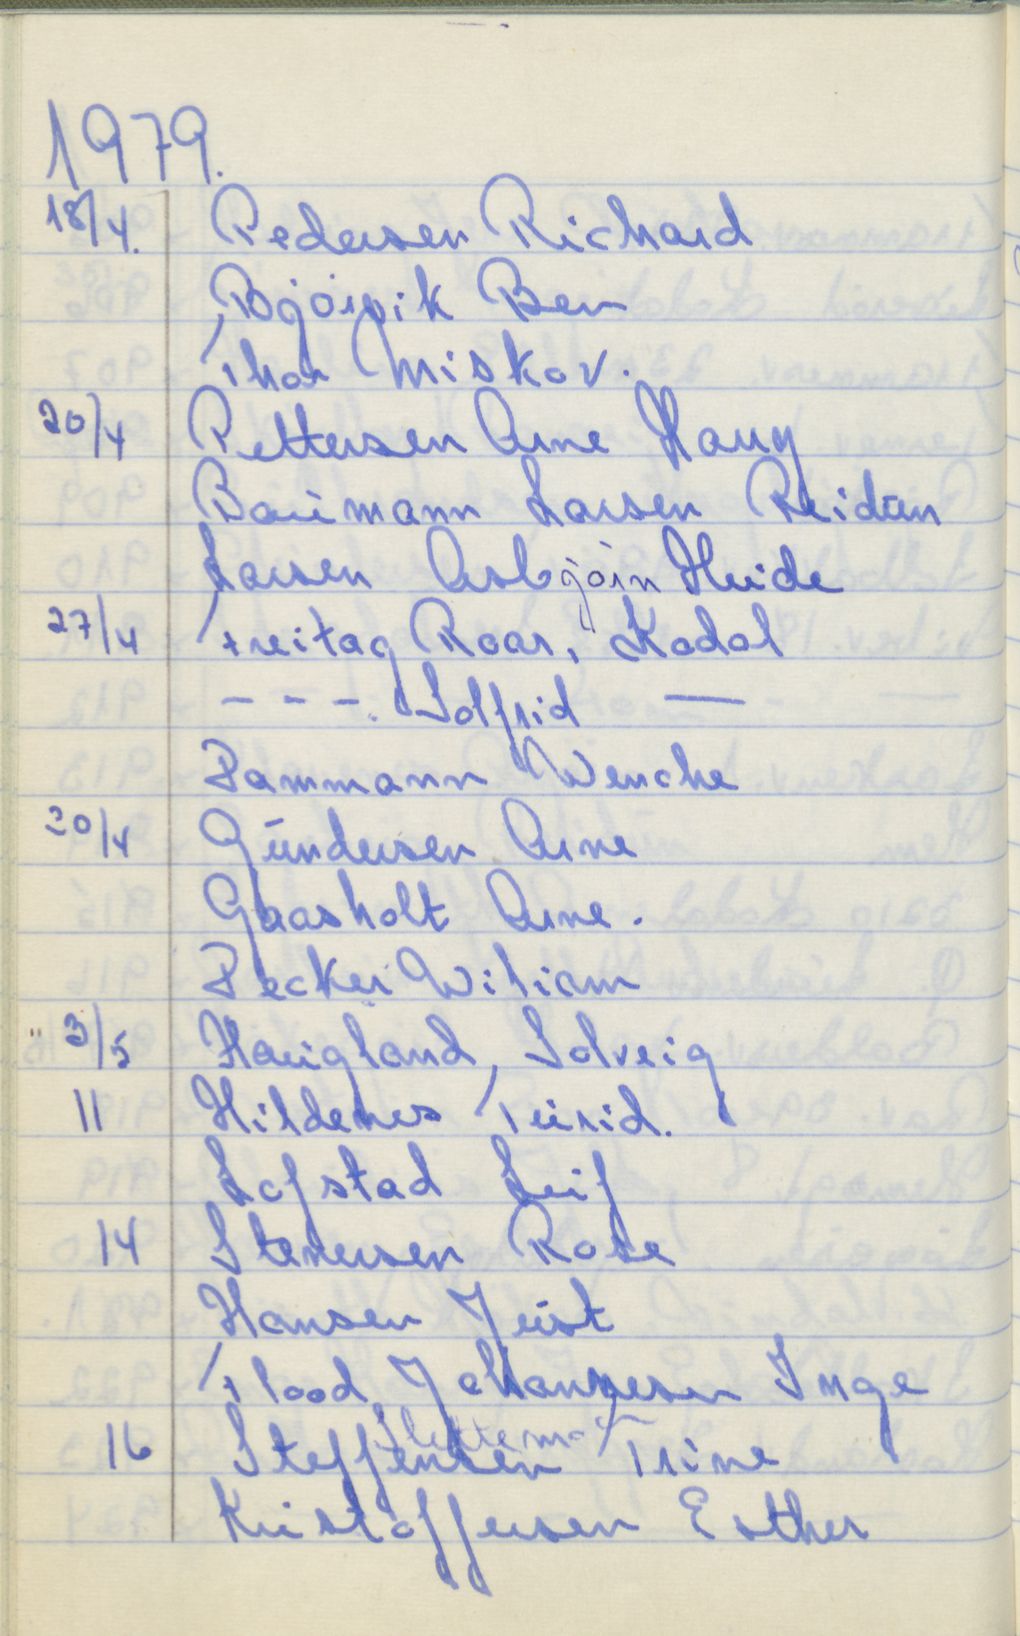 1979.
18/4. Pedersen Richard
Bjørvik Ben
Thor Miskov.
20/4 Pettersen Arne Haug
Baümann Larsen Reidün
Larsen Asbjørn Heide
27/4 Freitag Roar, Kodal
- - - . Solfrid —
Dammann Wenche
30/4 Gündersen Arne
Gaasholt Arne.
Becker Wiliam
3/5 Haügland, Solveig
11 Hildenes Türid.
Lofstad Leif
14 Stenersen Rose
Hansen Jüst
Flood Johannesen Inge
16 Steffensen Trine
Kristoffersen Esther